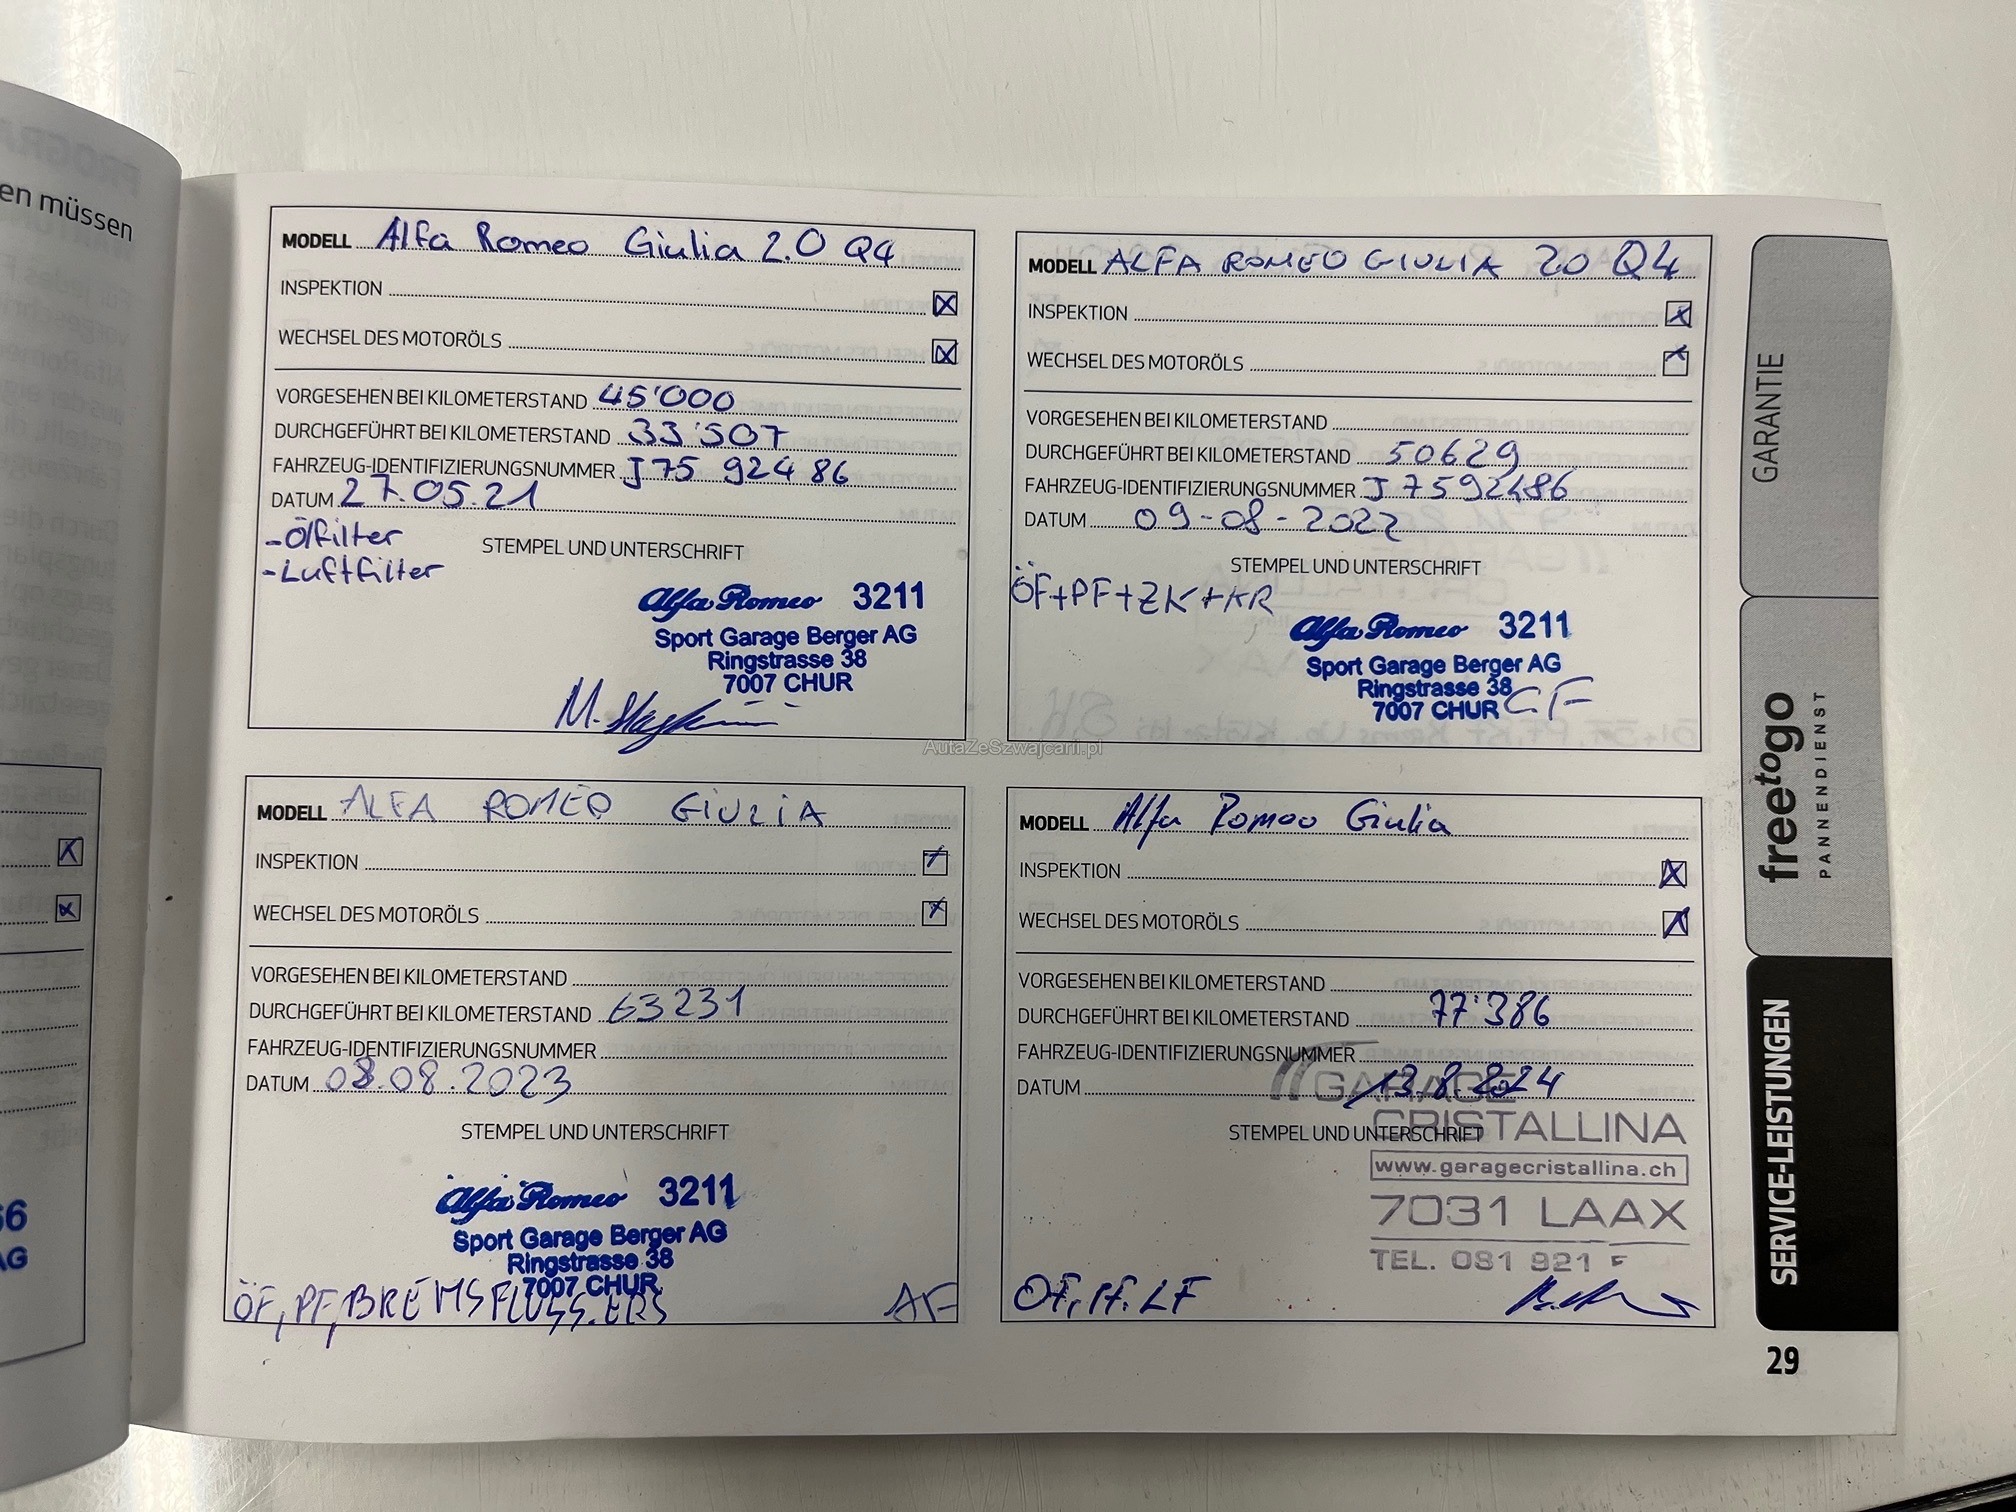 en müssen
MODELL Alfa Romeo Giulia 2.0 Q4
INSPEKTION
WECHSEL DES MOTORÖLS
VORGESEHEN BEI KILOMETERSTAND 45'000
DURCHGEFÜHRT BEI KILOMETERSTAND 33'507
FAHRZEUG-IDENTIFIZIERUNGSNUMMER J75 924 86
DATUM 27.05.21
-Ölfilter
-Luftfilter
STEMPEL UND UNTERSCHRIFT
Alfa Romeo 3211
Sport Garage Berger AG
Ringstrasse 38
7007 CHUR
MODELL ALFA ROMEO GIULIA 20 Q4
INSPEKTION
WECHSEL DES MOTORÖLS
VORGESEHEN BEI KILOMETERSTAND
DURCHGEFÜHRT BEI KILOMETERSTAND 50629
FAHRZEUG-IDENTIFIZIERUNGSNUMMER J7592486
DATUM 09-08-2022
STEMPEL UND UNTERSCHRIFT
ÖF+PF+ZK+KR
Alfa Romeo 3211
Sport Garage Berger AG
Ringstrasse 38
7007 CHUR
AutaZeSzwajcarii.pl
MODELL ALFA ROMEO GIULIA
INSPEKTION
WECHSEL DES MOTORÖLS
VORGESEHEN BEI KILOMETERSTAND
DURCHGEFÜHRT BEI KILOMETERSTAND 63231
FAHRZEUG-IDENTIFIZIERUNGSNUMMER
DATUM 08.08.2023
STEMPEL UND UNTERSCHRIFT
Alfa Romeo 3211
Sport Garage Berger AG
Ringstrasse 38
7007 CHUR
ÖF, PF, BREMSFLÜSS. ERS
AF
MODELL Alfa Romeo Giulia
INSPEKTION
WECHSEL DES MOTORÖLS
VORGESEHEN BEI KILOMETERSTAND
DURCHGEFÜHRT BEI KILOMETERSTAND 77'386
FAHRZEUG-IDENTIFIZIERUNGSNUMMER
DATUM 13.8.2024
STEMPEL UND UNTERSCHRIFT
GARAGE
CRISTALLINA
www.garagecristallina.ch
7031 LAAX
TEL. 081 921
ÖF, PF. LF
GARANTIE
freetogo
PANNENDIENST
SERVICE-LEISTUNGEN
29